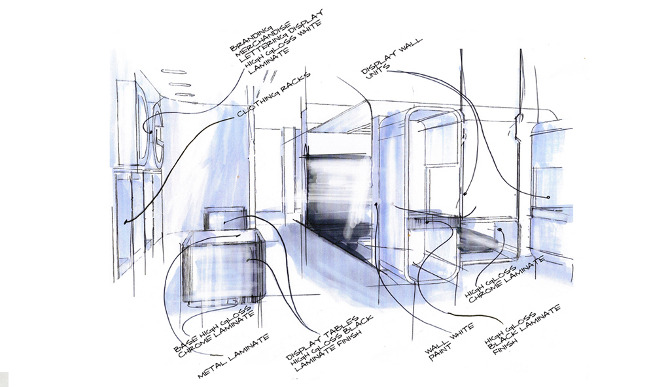 BRANDING
MERCHANDISE
LETTERING DISPLAY
HIGH GLOSS WHITE
LAMINATE
CLOTHING RACKS
DISPLAY WALL
UNITS
BASE HIGH GLOSS
CHROME LAMINATE
METAL LAMINATE
DISPLAY TABLES
HIGH GLOSS BLACK
LAMINATE FINISH
WALL WHITE
PAINT
HIGH GLOSS
CHROME LAMINATE
HIGH GLOSS
BLACK LAMINATE
FINISH